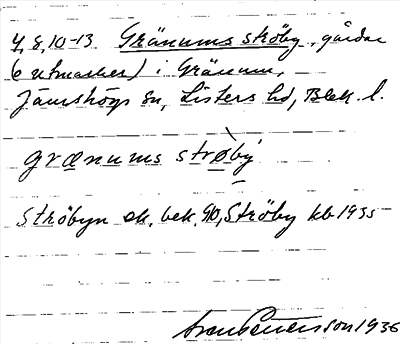 4, 8, 10-13. Gränums ströby, gårdar
(o utmarker) i Gränum,
Jämshögs sn, Listers hd, Blek. l.
grænums strøby
Ströbyn ek. bek. 90, Ströby kb 1935
Svan Benson 1936